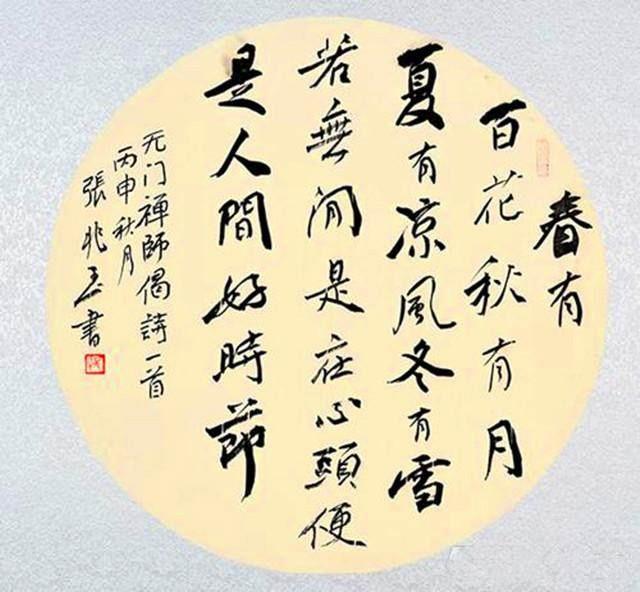 春有
百花秋有月
夏有凉風冬有雪
若無闲是在心頭便
是人間好時節
无门禅師偈詩一首
丙申秋月
張兆玉書